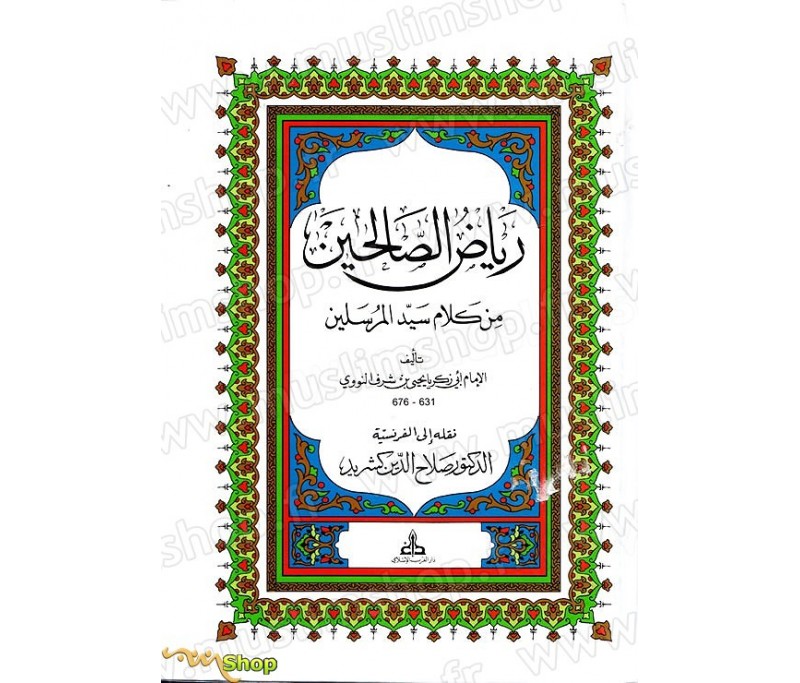 رياضُ الصَّالحين
مِن كلام سيّد المرسلين
تأليف
الإمام أبي زكريا يحيى بن شرف النووي
676 - 631
نقله إلى الفرنسيّة
الدكتور صلاح الدّين كشريد
دار الغرب الإسلامي
www.muslimshop.fr
Shop